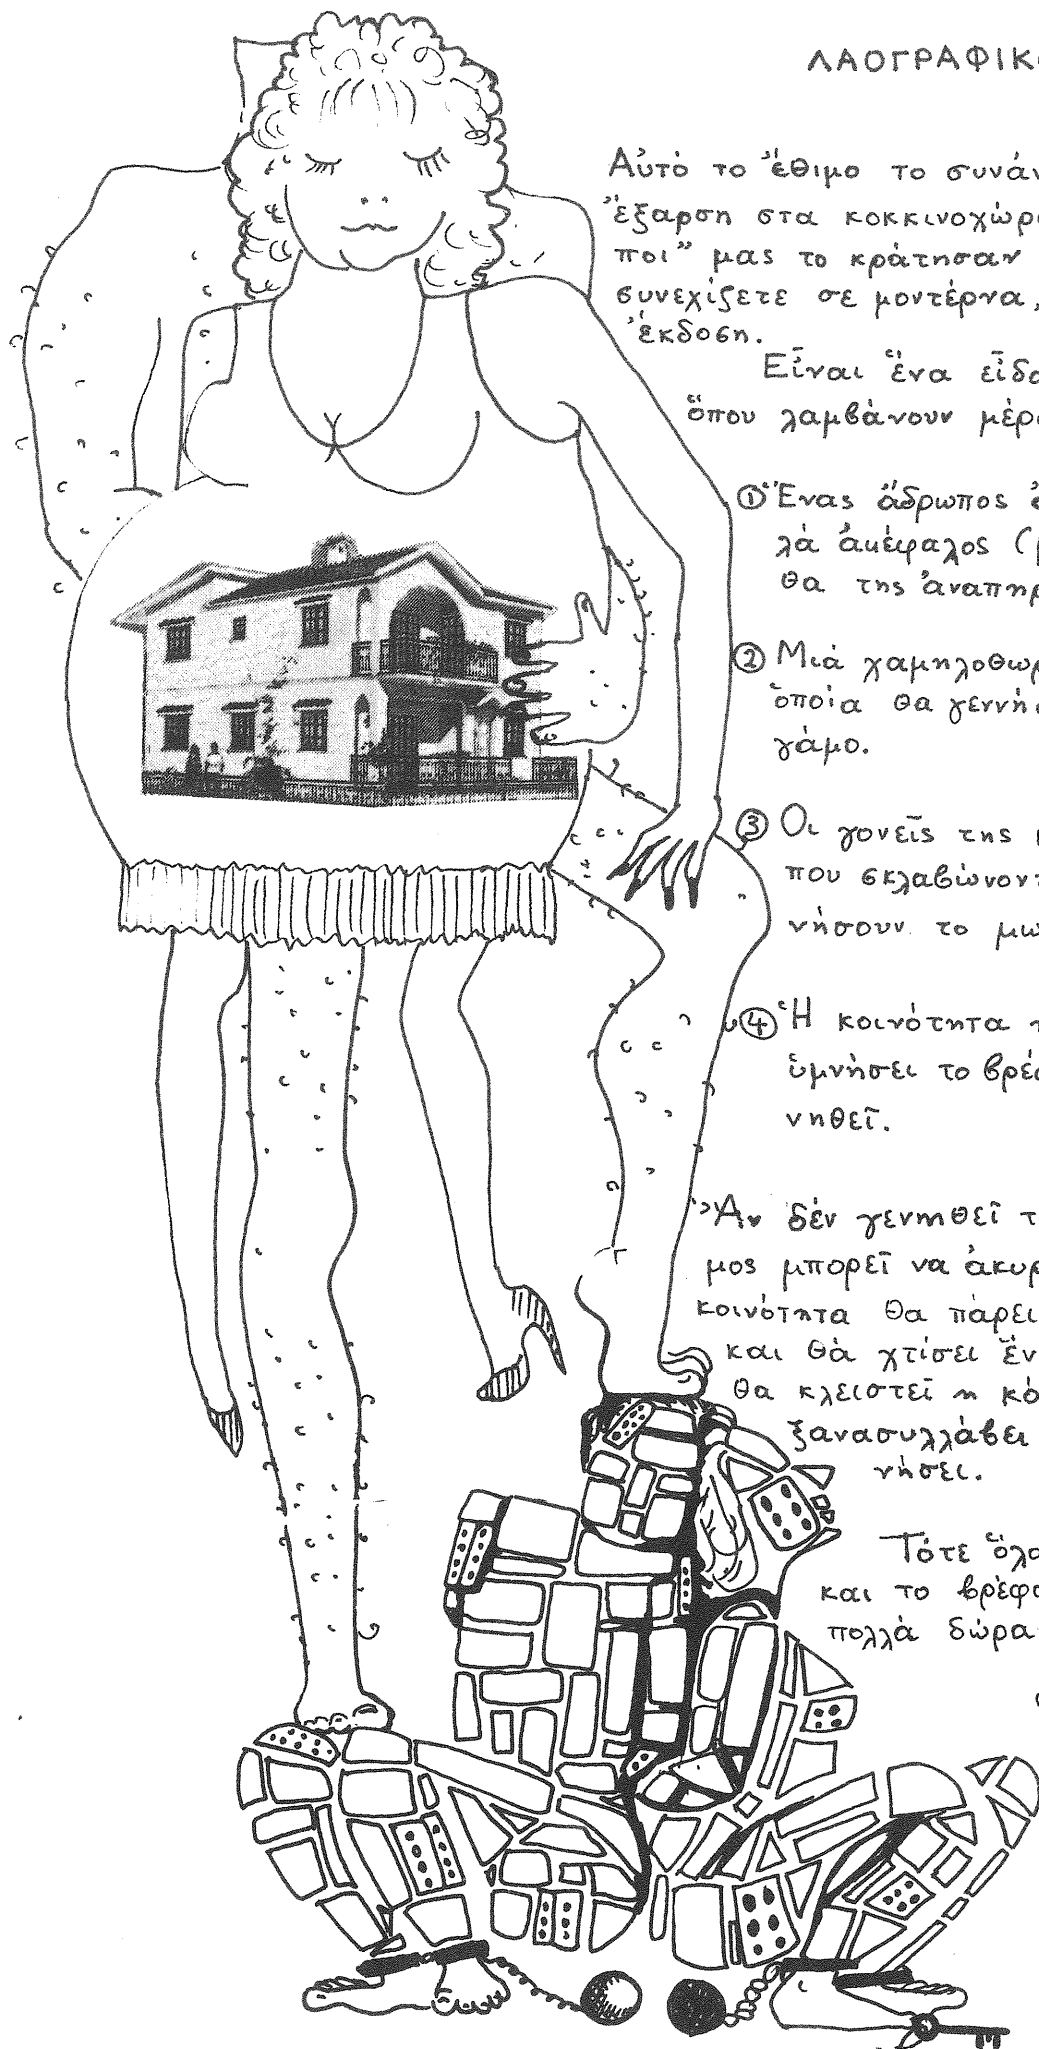 ΛΑΟΓΡΑΦΙΚ
Αὐτό το ἔθιμο το συνάν
ἔξαρση στα κοκκινοχώρ
ποι" μας το κράτησαν
συνεχίζετε σε μοντέρνα,
ἔκδοση.
Εἶναι ἕνα εἶδο
ὅπου λαμβάνουν μέρο
① Ἕνας ἄδρωπος
λά ἀκέφαλος (
θα της ἀναπηρ
② Μιά χαμηλοθωρ
ὁποία θα γεννή
γάμο.
③ Οι γονεῖς της
που σκλαβώνοντ
νήσουν το μω
④ Ἡ κοινότητα
ὑμνήσει το βρέ
νηθεῖ.
Ἄν δέν γεννηθεῖ τ
μος μπορεῖ να ἀκυρ
κοινότητα θα πάρει
και θά χτίσει ἕν
θα κλειστεῖ η κό
ξανασυλλάβει
νήσει.
Τότε ὅλο
και το βρέφο
πολλά δώρα